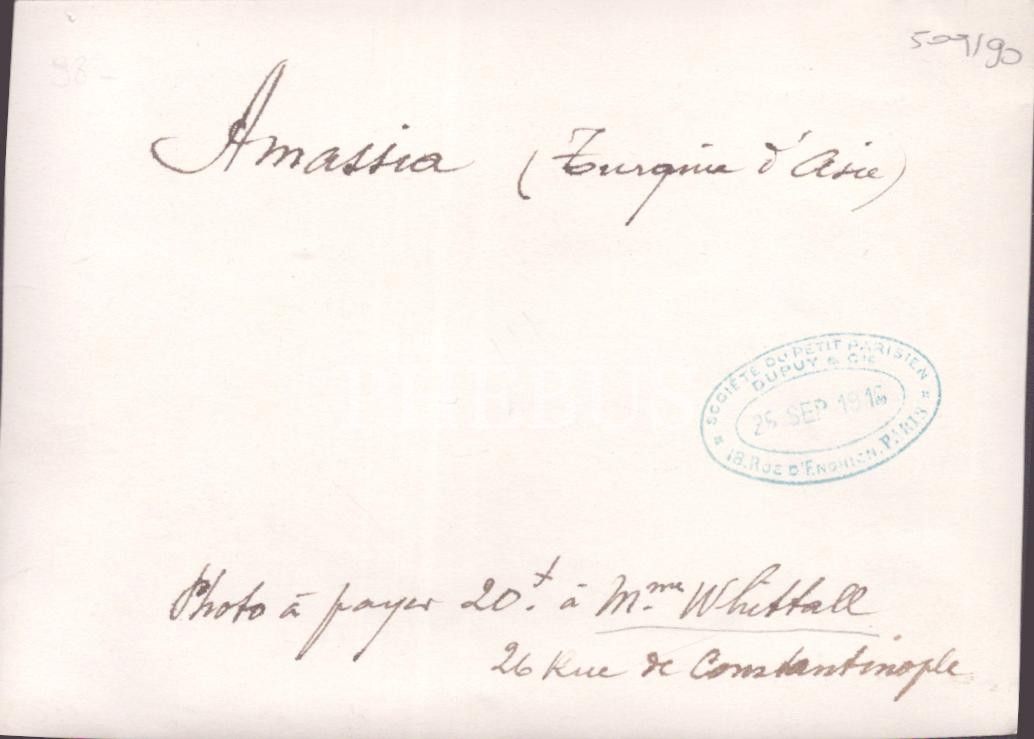 98-
509/90
Amassia (Turquie d'Asie)
SOCIÉTÉ DU PETIT PARISIEN
DUPUY & CIE
25 SEP 1916
18, RUE D'ENGHIEN, PARIS
PHEBUS
Photo à payer 20.f à Mme Whittall
26 Rue de Constantinople